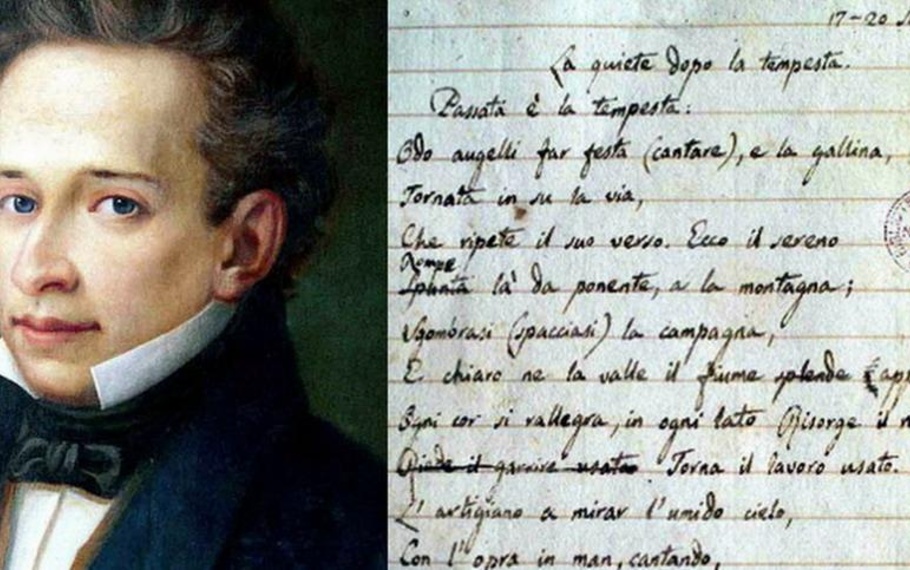 17-20
La quiete dopo la tempesta.
Passata è la tempesta:
Odo augelli far festa (cantare), e la gallina,
Tornata in su la via,
Che ripete il suo verso. Ecco il sereno
Rompe
Spunta là da ponente, a la montagna;
Sgombrasi (spacciasi) la campagna,
E chiaro ne la valle il fiume splende
Ogni cor si rallegra, in ogni lato Risorge il
Riede il garrire usato. Torna il lavoro usato.
L' artigiano a mirar l'umido cielo,
Con l'opra in man, cantando,